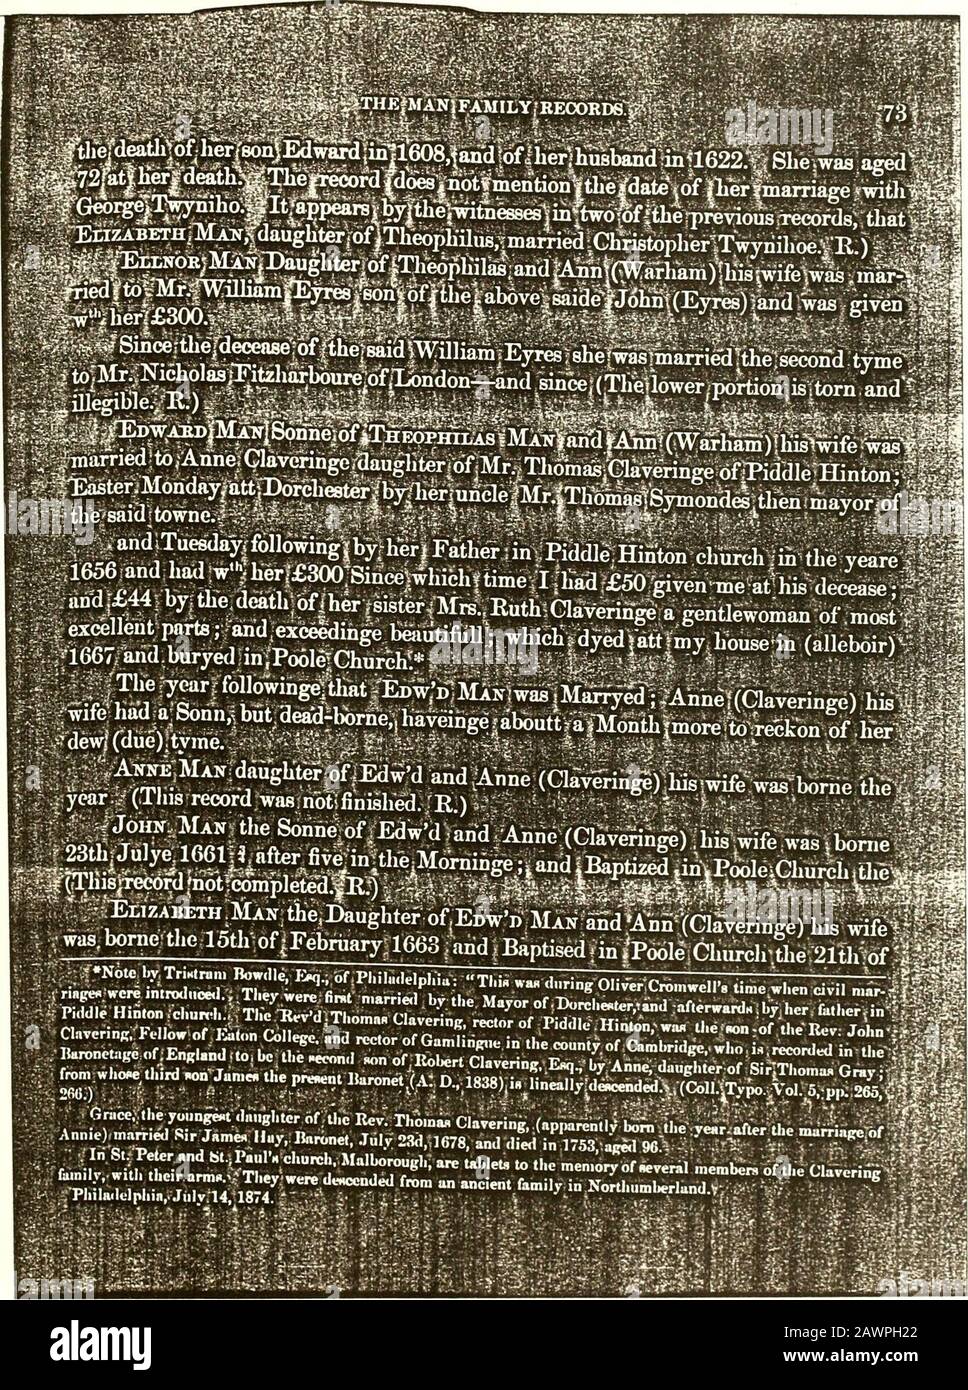 THE MAN FAMILY RECORDS. 73
the death of her son Edward in 1608, and of her husband in 1622. She was aged
72 at her death. The record does not mention the date of her marriage with
George Twyniho. It appears by the witnesses in two of the previous records, that
ELIZABETH MAN, daughter of Theophilus, married Christopher Twynihoe. R.)
ELLNOR MAN Daughter of Theophilas and Ann (Warham) his wife was mar-
ried to Mr. William Eyres son of the above saide John (Eyres) and was given
wth her £300.
Since the decease of the said William Eyres she was married the second tyme
to Mr. Nicholas Fitzharboure of London—and since (The lower portion is torn and
illegible. R.)
EDWARD MAN Sonne of THEOPHILAS MAN and Ann (Warham) his wife was
married to Anne Claveringe daughter of Mr. Thomas Claveringe of Piddle Hinton;
Easter Monday att Dorchester by her uncle Mr. Thomas Symondes then mayor of
the said towne.
and Tuesday following by her Father in Piddle Hinton church in the yeare
1656 and had wth her £300 Since which time I had £50 given me at his decease;
and £44 by the death of her sister Mrs. Ruth Claveringe a gentlewoman of most
excellent parts; and exceedinge beautifull; which dyed att my house in (alleboir)
1667 and buryed in Poole Church.*
The year followinge that EDW'D MAN was Marryed; Anne (Claveringe) his
wife had a Sonn, but dead-borne, haveinge aboutt a Month more to reckon of her
dew (due) tyme.
ANNE MAN daughter of Edw'd and Anne (Claveringe) his wife was borne the
year (This record was not finished. R.)
JOHN MAN the Sonne of Edw'd and Anne (Claveringe) his wife was borne
23th Julye 1661 ¾ after five in the Morninge; and Baptized in Poole Church the
(This record not completed. R.)
ELIZABETH MAN the Daughter of EDW'D MAN and Ann (Claveringe) his wife
was borne the 15th of February 1663 and Baptised in Poole Church the 21th of
*Note by Tristram Bowdle, Esq., of Philadelphia: "This was during Oliver Cromwell's time when civil mar-
riages were introduced. They were first married by the Mayor of Dorchester, and afterwards by her father in
Piddle Hinton church. The Rev'd Thomas Clavering, rector of Piddle Hinton, was the son of the Rev. John
Clavering, Fellow of Eaton College, and rector of Gamlingue in the county of Cambridge, who is recorded in the
Baronetage of England to be the second son of Robert Clavering, Esq., by Anne, daughter of Sir Thomas Gray;
from whose third son James the present Baronet (A. D., 1838) is lineally descended. (Coll. Typo. Vol. 5, pp. 265,
266.)
Grace, the youngest daughter of the Rev. Thomas Clavering, (apparently born the year after the marriage of
Annie) married Sir James Hay, Baronet, July 23d, 1678, and died in 1753, aged 96.
In St. Peter and St. Paul's church, Malborough, are tablets to the memory of several members of the Clavering
family, with their arms. They were descended from an ancient family in Northumberland.
Philadelphia, July 14, 1874.
alamy
Image ID: 2AWPH22
www.alamy.com